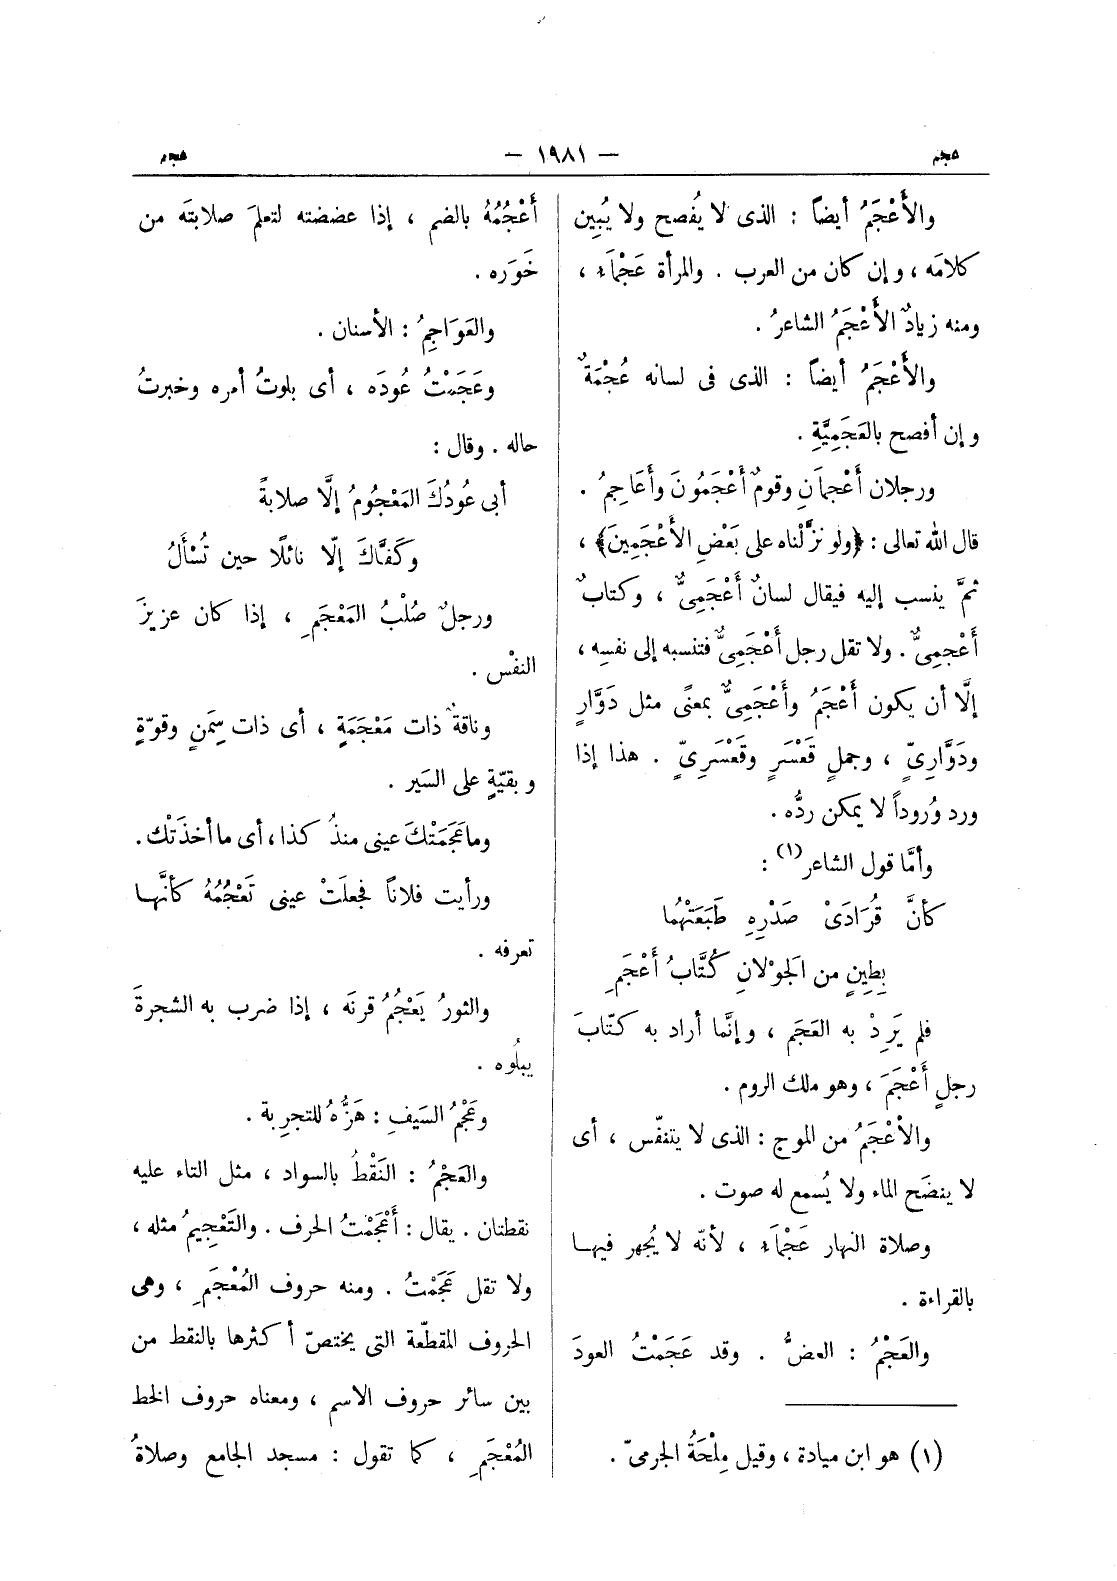 عجم
— ١٩٨١ —
عجم
والأَعْجَمُ أيضاً : الذى لا يُفصح ولا يُبِين
كلامَه ، وإن كان من العرب . والمرأة عَجْمَاء ،
ومنه زيادٌ الأَعْجَمُ الشاعرُ .
والأَعْجَمُ أيضاً : الذى فى لسانه عُجْمَةٌ
وإن أفصح بالعَجَمِيَّةِ .
ورجلان أَعْجمانِ وقومٌ أَعْجَمُونَ وأَعَاجِمُ .
قال الله تعالى : ﴿ولو نزَّلْناه على بَعْضِ الأَعْجَمِينَ﴾ ،
ثمَّ ينسب إليه فيقال لسانٌ أَعْجَمِىٌّ ، وكتابٌ
أَعْجمِىٌّ . ولا تقل رجل أَعْجَمِىٌّ فتنسبه إلى نفسِه ،
إلَّا أن يكون أَعْجَمُ وأَعْجَمِىٌّ بمعنًى مثل دَوَّارٍ
ودَوَّارِىٍّ ، وجملٍ قَعْسَرٍ وقَعْسَرِىٍّ . هذا إذا
ورد وُروداً لا يمكن ردُّه .
وأمَّا قول الشاعر (١) :
كأنَّ قُرَادَىْ صَدْرِهِ طَبَعَتْهُما
بِطِينٍ من الجَوْلانِ كُتَّابُ أَعْجَمِ
فلم يَرِدْ به العَجَم ، وإنَّما أراد به كتّابَ
رجلٍ أَعْجَمَ ، وهو ملك الروم .
والأَعْجَمُ من الموج : الذى لا يتنفّس ، أى
لا ينضَح الماء ولا يُسمع له صوت .
وصلاة النهار عَجْمَاء ، لأنّه لا يُجهر فيها
بالقراءة .
والعَجْمُ : العضُّ . وقد عَجَمْتُ العودَ
(١) هو ابن ميادة ، وقيل مِلْحَةُ الجرمىّ .
أَعْجُمُهُ بالضم ، إذا عضضته لتعلمَ صلابتَه من
خَوَره .
والعَوَاجِمُ : الأسنان .
وعَجَمْتُ عُودَه ، أى بلوتُ أمره وخبرتُ
حاله . وقال :
أبى عُودُكَ المَعْجُومُ إلَّا صلابةً
وكَفَّاكَ إلّا نائلًا حين تُسْأَلُ
ورجلٌ صُلْبُ المَعْجَمِ ، إذا كان عزيزَ
النفْس .
وناقةٌ ذات مَعْجَمَةٍ ، أى ذات سِمَنٍ وقوّةٍ
وبقيّةٍ على السَير .
وما عَجَمَتْكَ عينى منذُ كذا ، أى ما أخذَتْك .
ورأيت فلاناً فجعلَتْ عينى تَعْجُمُهُ كأنَّها
تعرفه .
والثورُ يَعْجُمُ قرنَه ، إذا ضرب به الشجرةَ
يبلُوه .
وعَجْمُ السَيفِ : هَزُّهُ للتجرِبة .
والعَجْمُ : النَقْطُ بالسواد ، مثل التاء عليه
نقطتان . يقال : أَعْجَمْتُ الحرف . والتَعْجِيمُ مثله ،
ولا تقل عَجَمْتُ . ومنه حروف المُعْجَمِ ، وهى
الحروف المقطّعة التى يختصّ أكثرها بالنقط من
بين سائر حروف الاسم ، ومعناه حروف الخط
المُعْجَمِ ، كما تقول : مسجد الجامع وصلاةُ